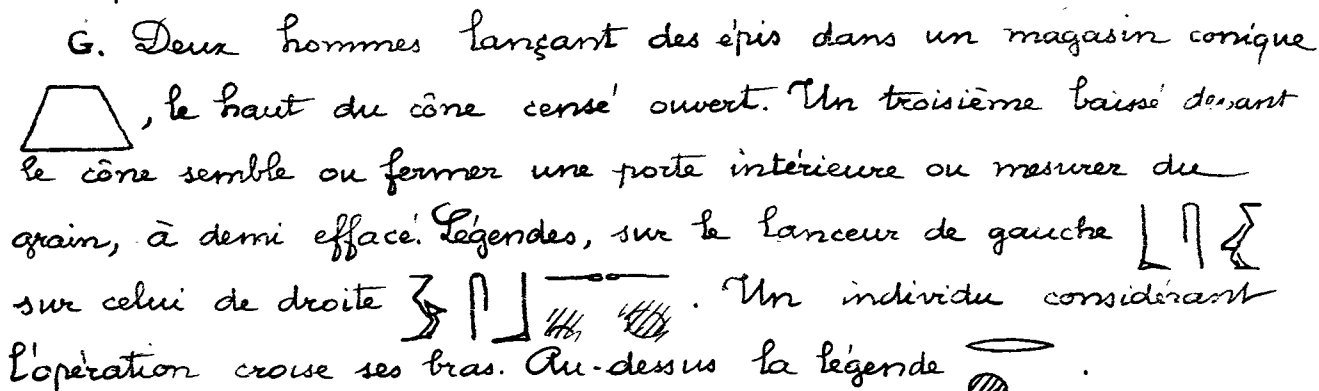 G. Deux hommes lançant des épis dans un magasin conique
, le haut du cône censé ouvert. Un troisième baissé devant
le cône semble ou fermer une porte intérieure ou mesurer du
grain, à demi effacé. Légendes, sur le lanceur de gauche 𓃀𓋴𓄿
sur celui de droite
. Un individu considérant
l'opération croise ses bras. Au-dessus la légende .